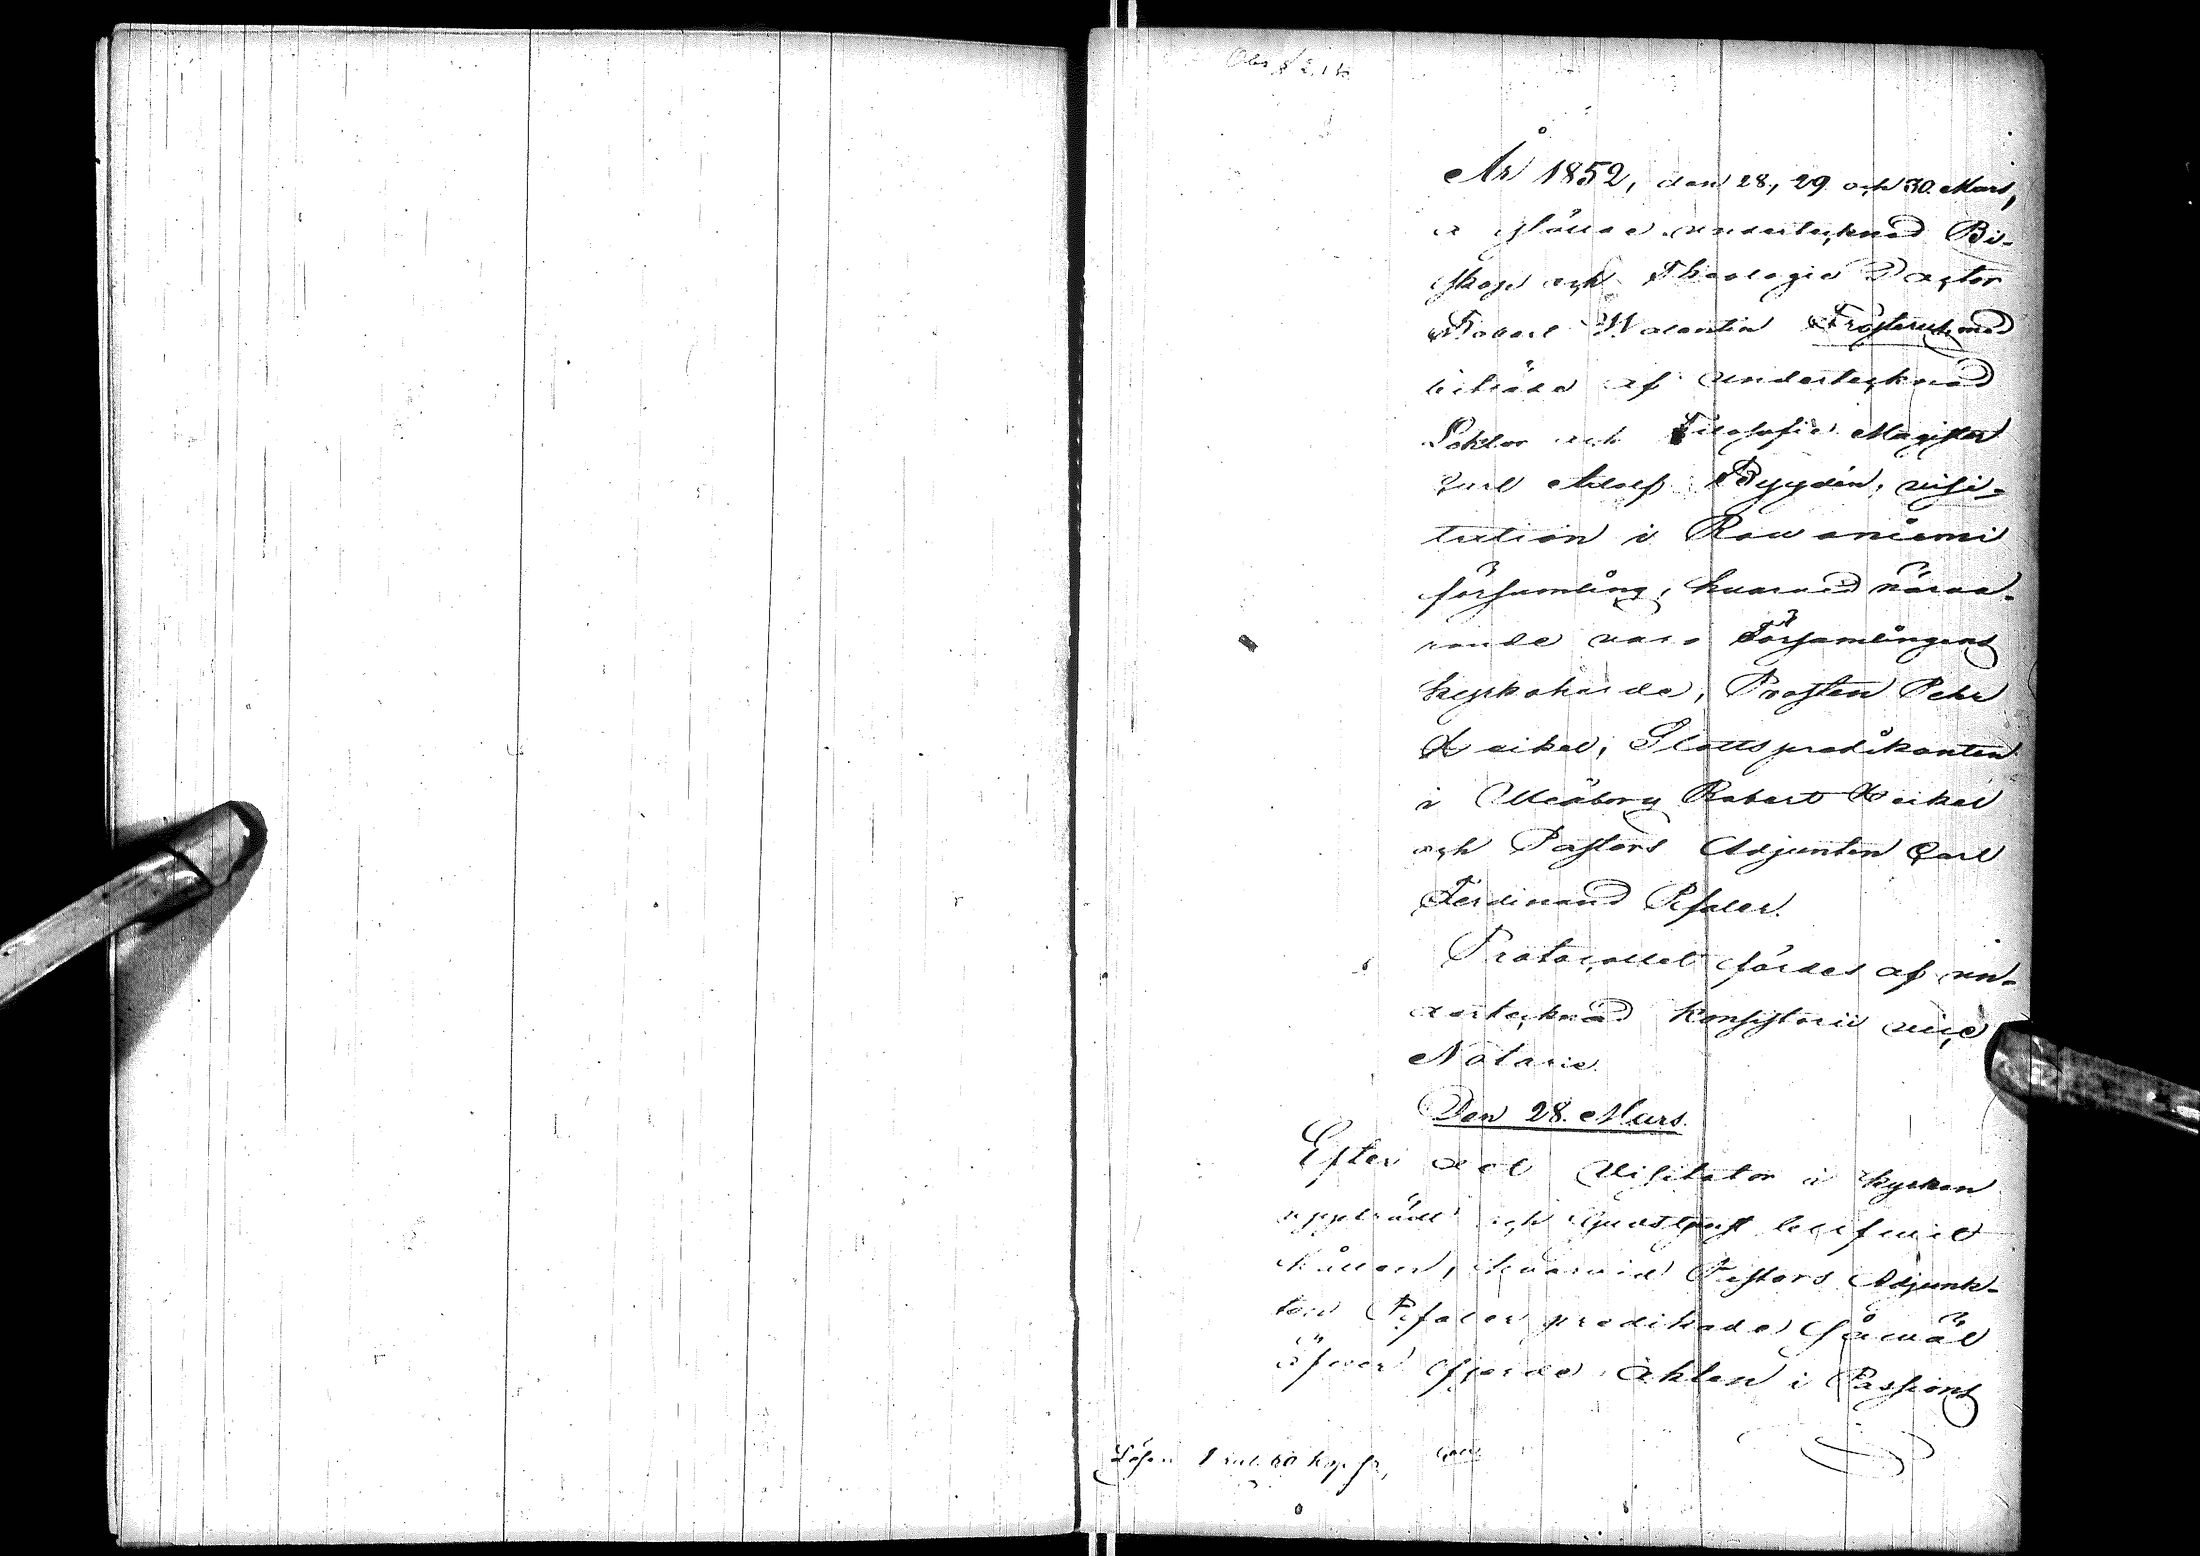 Obs §
År 1852, den 28, 29 och 30. Mars,
höllsde undertecknad Bi-
skop och Theologie Doctor
Robert Walentin Frosterus, med
biträde af undertecknad
Lektor och Filosofie Magister
Carl Adolf Bygdén, visi-
tation i Rowaniemi
församling, hvarvid närva-
rande voro Församlingens
kyrkoherde, Prosten Pehr
Heikel, Slottspredikanten
i Uleåborg Robert Heikel
och Pastors Adjunten Carl
Ferdinand Pfaler.
Protocollet fördes af un-
dertecknad Konsistorii vice
Notarie.
Den 28. Mars.
Efter det Visitator i kyrkan
uppträdt och Gudstjenst blifvit
hållen, hvarvid Pastors Adjunk-
ten Pfaler predikade såväl
öfver fjerde akten i Passions
Lösen 1 rub. 80 kop. sr,